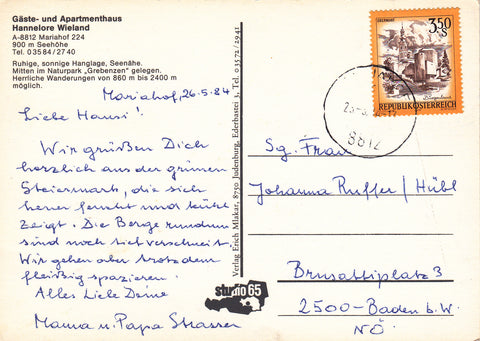 Gäste- und Apartmenthaus
Hannelore Wieland
A-8812 Mariahof 224
900 m Seehöhe
Tel. 0 35 84 / 27 40
Ruhige, sonnige Hanglage, Seenähe.
Mitten im Naturpark „Grebenzen" gelegen.
Herrliche Wanderungen von 860 m bis 2400 m
möglich.
Mariahof, 26.5.84
Liebe Hansi!
Wir grüßen Dich
herzlich aus der grünen
Steiermark, die sich
heuer feucht und kühl
zeigt. Die Berge rundum
sind noch tief verschneit.
Wir gehen aber trotzdem
fleißig spazieren.
Alles Liebe Deine
Mama u. Papa Strasser
Verlag Erich Mlakar, 8750 Judenburg, Ederbastei 3, Tel. 0 35 72 / 59 41
studio 65
3.50
S
REPUBLIK ÖSTERREICH
8812
Sg. Frau
Johanna Ruffer / Hübl
Brusattiplatz 3
2500-Baden b. W.
NÖ.